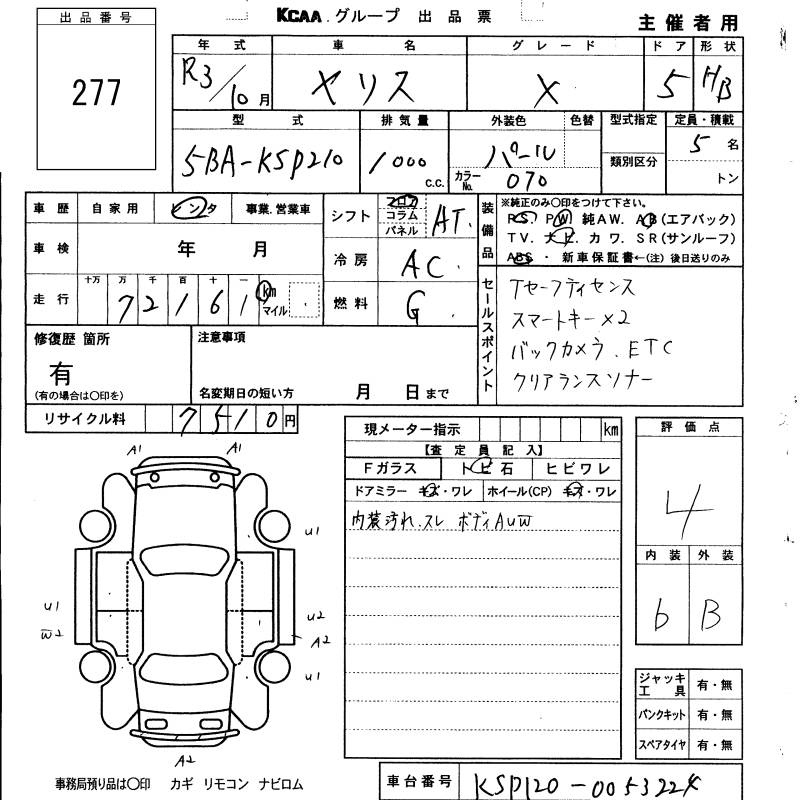 KCAA. グループ 出品票
主催者用
出品番号
277
年式 車名 グレード ドア 形状
R3/10月 ヤリス X 5 HB
型式 排気量 外装色 色替 型式指定 定員・積載
5BA-KSP210 1000 c.c. パール 5名
カラーNo. 070 類別区分 トン
車歴 自家用 レンタ 事業.営業車
車検 年 月
走行 十万 万 千 百 十 一
72161 km マイル
シフト フロア コラム パネル AT.
冷房 AC.
燃料 G.
装備品 ※純正のみ〇印をつけて下さい。
PS. PW 純AW. AB(エアバック)
TV. ナビ. カワ. SR(サンルーフ)
ABS ・ 新車保証書←(注) 後日送りのみ
セールスポイント
Tセーフティセンス
スマートキー×2
バックカメラ. ETC
クリアランスソナー
修復歴 箇所
有
(有の場合は〇印を)
注意事項
名変期日の短い方 月 日まで
リサイクル料 7510円
現メーター指示 km
【査定員記入】
Fガラス トビ石 ヒビワレ
ドアミラー キズ・ワレ ホイール(CP) キズ・ワレ
内装汚れ.スレ ボディAUW
評価点
4
内装 外装
b B
ジャッキ工具 有・無
パンクキット 有・無
スペアタイヤ 有・無
A1 A1
U1
U1 U2
W2 A2
U1
A2
事務局預り品は〇印 カギ リモコン ナビロム
車台番号 KSP120-0053224